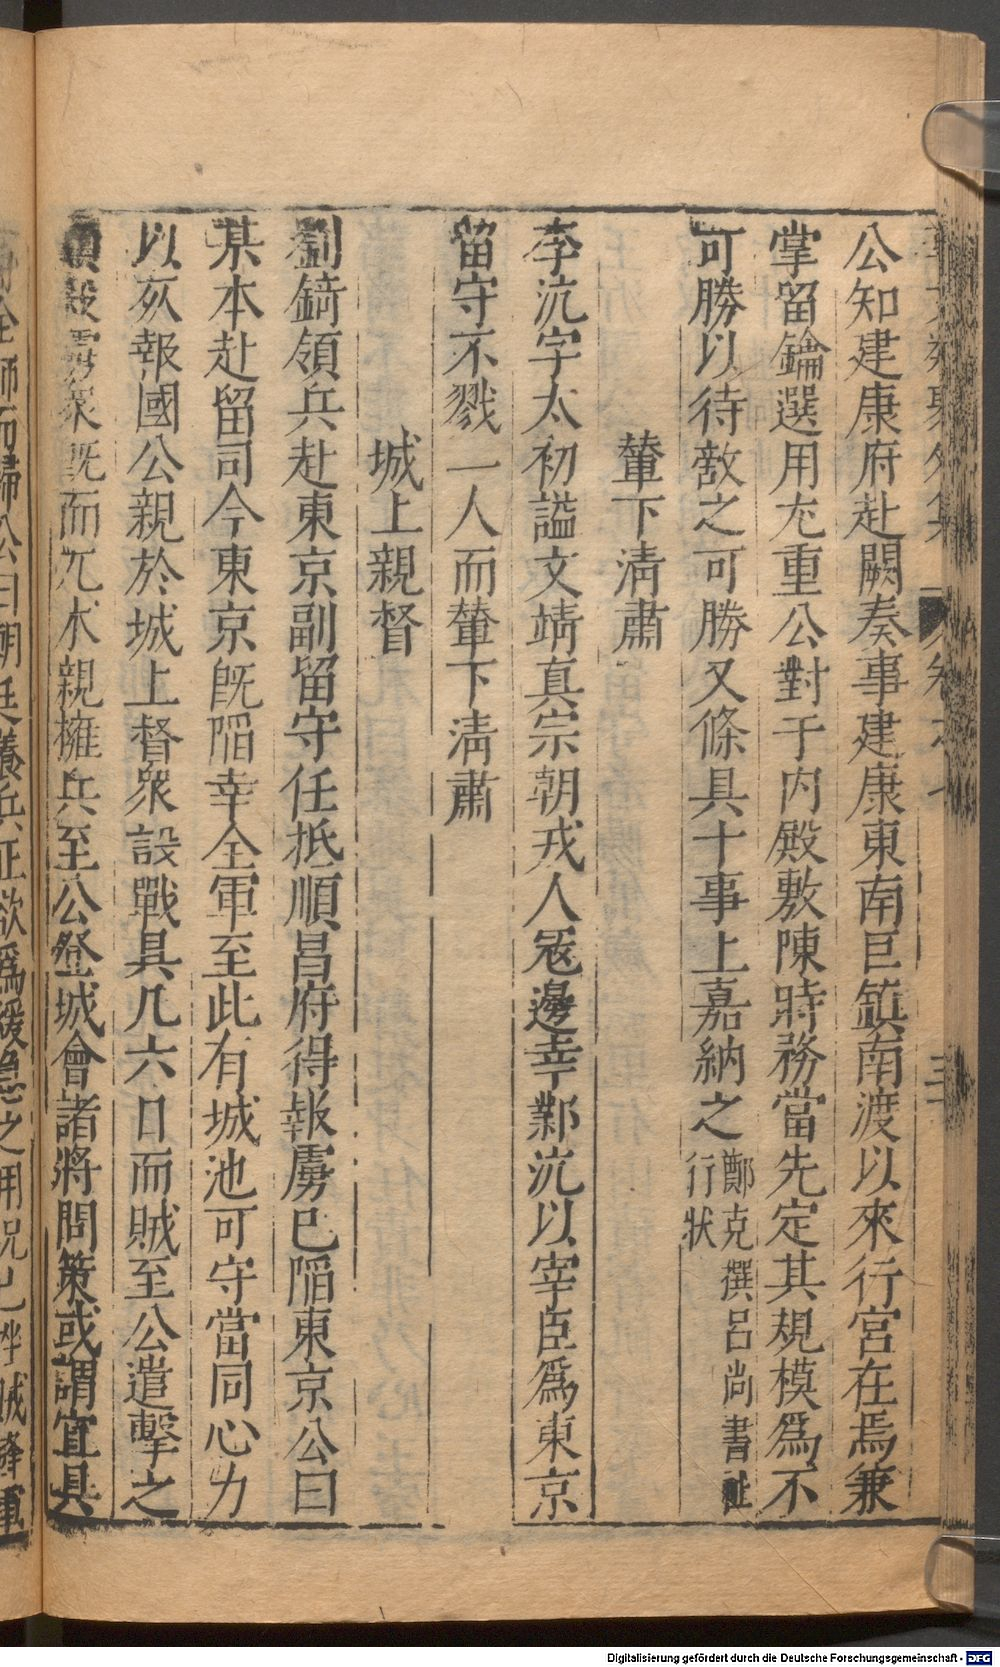 公知建康府赴闕奏事建康東南巨鎮南渡以來行宮在焉兼
掌留鑰選用尤重公對于内殿敷陳時務當先定其規模為不
可勝以待敵之可勝又條具十事上嘉納之鄭克撰呂尚書祉
行狀
輦下清肅
李沆字太初謚文靖真宗朝戎人寇邊幸鄴沆以宰臣為東京
留守不戮一人而輦下清肅
城上親督
劉錡領兵赴東京副留守任抵順昌府得報虜已陷東京公曰
某本赴留司今東京既陷幸全軍至此有城池可守當同心力
以死報國公親於城上督衆設戰具凡六日而賊至公遣擊之
殺衆既而兀术親擁兵至公登城會諸將問策或謂宜具
全師而歸公曰朝廷養兵正欲為緩急之用况已挫賊鋒軍
Digitalisierung gefördert durch die Deutsche Forschungsgemeinschaft - DFG